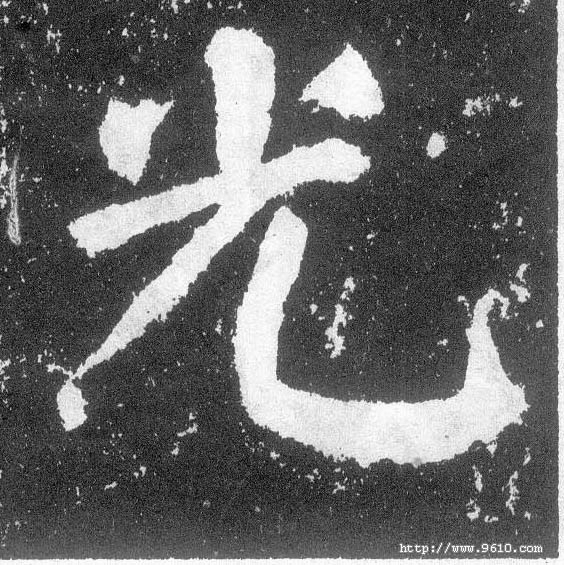 光
http://www.9610.com